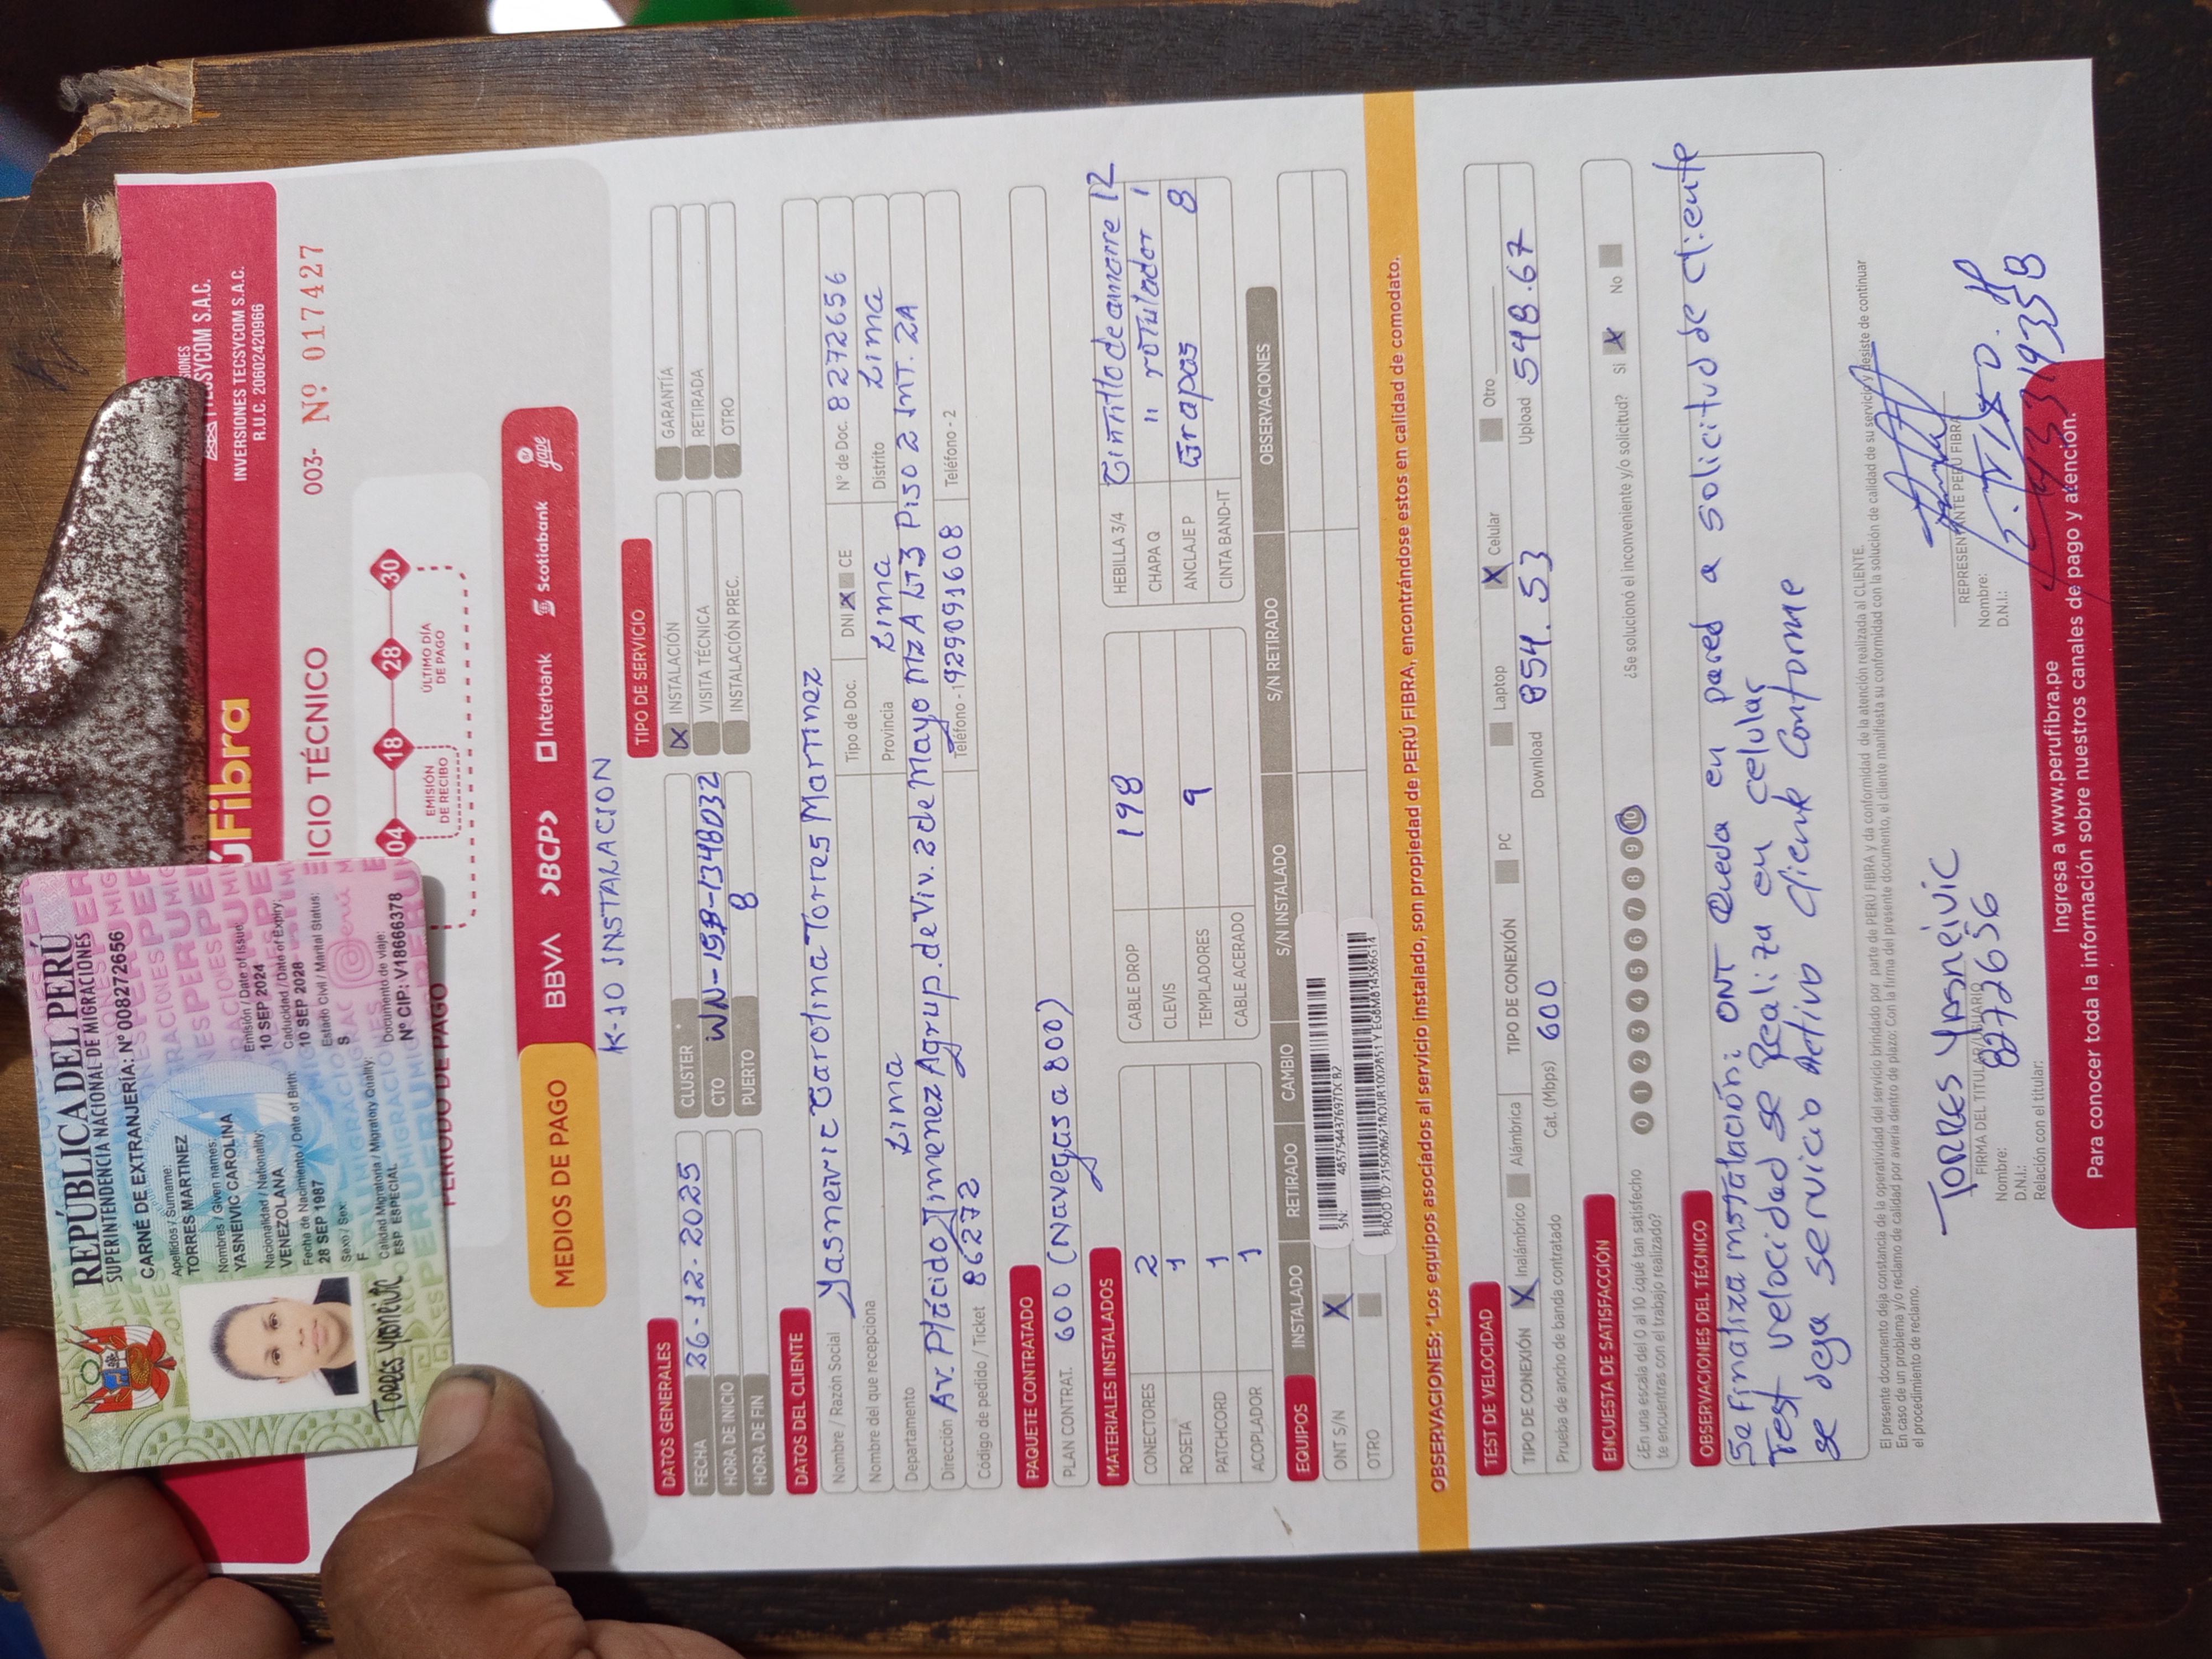 REPÚBLICA DEL PERÚ
SUPERINTENDENCIA NACIONAL DE MIGRACIONES
CARNÉ DE EXTRANJERÍA: N° 008272656
Apellidos / Surname:
TORRES MARTINEZ
Nombres / Given names:
YASNEIVIC CAROLINA
Nacionalidad / Nationality:
VENEZOLANA
Fecha de Nacimiento / Date of Birth:
28 SEP 1987
Sexo / Sex:
F
Calidad Migratoria / Migratory Quality:
ESP ESPECIAL
Emisión / Date of Issue:
10 SEP 2024
Caducidad / Date of Expiry:
10 SEP 2028
Estado Civil / Marital Status:
S
Documento de viaje:
N° CIP: V18666378
úFibra
TECSYCOM S.A.C.
INVERSIONES TECSYCOM S.A.C.
R.U.C. 20602420966
ICIO TÉCNICO
003- Nº 017427
PERIODO DE PAGO
04 18 28 30
EMISIÓN DE RECIBO
ÚLTIMO DÍA DE PAGO
MEDIOS DE PAGO
BBVA >BCP> Interbank Scotiabank yape
K-10 INSTALACION
DATOS GENERALES
FECHA 26-12-2025
HORA DE INICIO
HORA DE FIN
CLUSTER
CTO WN-15B-134BD32
PUERTO 8
TIPO DE SERVICIO
X INSTALACIÓN
VISITA TÉCNICA
INSTALACIÓN PREC.
GARANTÍA
RETIRADA
OTRO
DATOS DEL CLIENTE
Nombre / Razón Social Yasneivic Carolina Torres Martinez
Nombre del que recepciona Tipo de Doc. DNI X CE N° de Doc. 8272656
Departamento Lima Provincia Lima Distrito Lima
Dirección Av. Placido Jimenez Agrup. de Viv. 2 de Mayo Mz A Lt 3 Piso 2 Int. 2A
Código de pedido / Ticket 86272 Teléfono - 1 929091608 Teléfono - 2
PAQUETE CONTRATADO
PLAN CONTRAT. 600 (Navegas a 800)
MATERIALES INSTALADOS
CONECTORES 2
ROSETA 1
PATCHCORD 1
ACOPLADOR 1
CABLE DROP 198
CLEVIS
TEMPLADORES 9
CABLE ACERADO
HEBILLA 3/4 Cintillo de amarre 12
CHAPA Q " rotulador 1
ANCLAJE P Grapas 8
CINTA BAND-IT
EQUIPOS INSTALADO RETIRADO CAMBIO S/N INSTALADO S/N RETIRADO OBSERVACIONES
ONT S/N X
SN: 485754437697DCB2
OTRO
OBSERVACIONES: "Los equipos asociados al servicio instalado, son propiedad de PERÚ FIBRA, encontrándose estos en calidad de comodato.
TEST DE VELOCIDAD
TIPO DE CONEXIÓN X Inalámbrico Alámbrica TIPO DE CONEXIÓN PC Laptop X Celular Otro
Prueba de ancho de banda contratado Cat. (Mbps) 600 Download 854.53 Upload 548.67
ENCUESTA DE SATISFACCIÓN
¿En una escala del 0 al 10 ¿qué tan satisfecho
te encuentras con el trabajo realizado?
0 1 2 3 4 5 6 7 8 9 10
¿Se solucionó el inconveniente y/o solicitud? Si X No
OBSERVACIONES DEL TÉCNICO
Se Finaliza instalación: ONT Queda en pared a solicitud de Cliente
Test velocidad se Realiza en celular
se deja servicio Activo Cliente Conforme
El presente documento deja constancia de la operatividad del servicio brindado por parte de PERÚ FIBRA y da conformidad de la atención realizada al CLIENTE.
En caso de un problema y/o reclamo de calidad por avería dentro de plazo: Con la firma del presente documento, el cliente manifiesta su conformidad con la solución de calidad de su servicio y desiste de continuar
el procedimiento de reclamo.
TORRES YASNEIVIC
FIRMA DEL TITULAR/USUARIO
Nombre:
D.N.I.: 8272656
Relación con el titular:
REPRESENTANTE PERÚ FIBRA
Nombre:
D.N.I.:
Ingresa a www.perufibra.pe
Para conocer toda la información sobre nuestros canales de pago y atención.